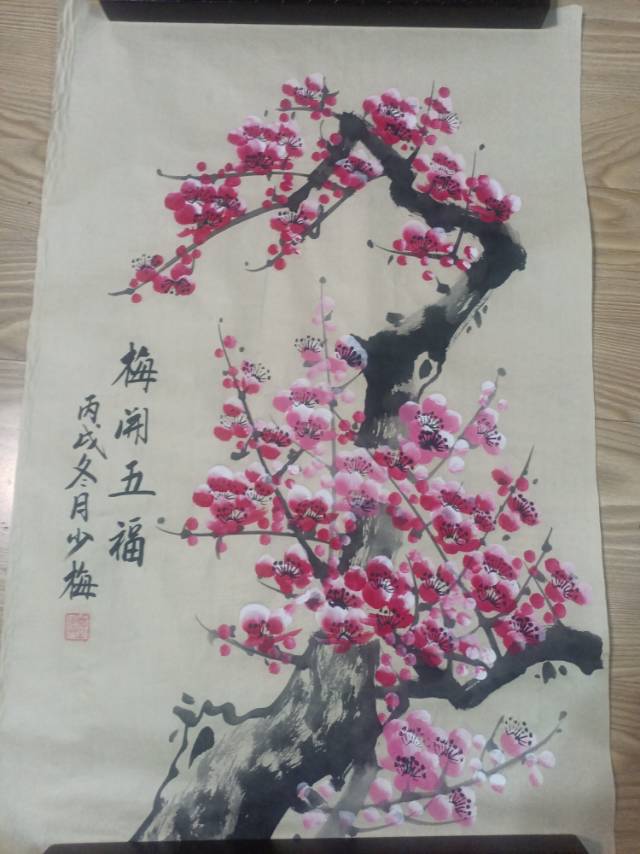 梅開五福
丙戌冬月少梅